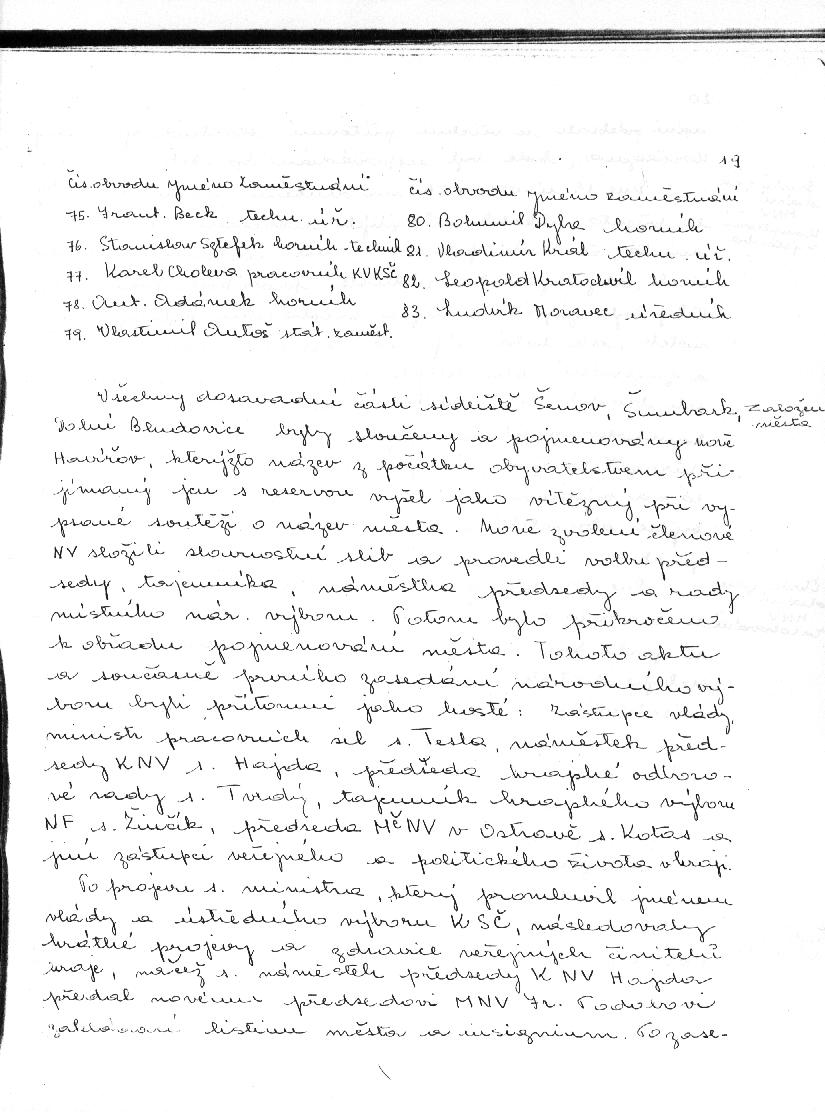 19
čís. obvodu jméno zaměstnání
75. Frant. Beck techn. úř.
76. Stanislav Sztefek horník-technik
77. Karel Choleva pracovník KVKSČ
78. Ant. Adámek horník
79. Vlastimil Antoš stát. zaměst.
čís. obvodu jméno zaměstnání
80. Bohumil Dyba horník
81. Vladimír Král techn. úř.
82. Leopold Kratochvíl horník
83. Ludvík Moravec úředník
Všechny dosavadní části sídliště Šenov, Šumbark,
Dolní Bludovice byly sloučeny a pojmenovány nově
Havířov, kterýžto název z počátku obyvatelstvem při-
jímaný jen s reservou vyšel jako vítězný při vy-
psané soutěži o název města. Nově zvolení členové
NV složili slavnostní slib a provedli volbu před-
sedy, tajemníka, náměstka předsedy a rady
místního nár. výboru. Potom bylo přikročeno
k obřadu pojmenování města. Tohoto aktu
a současně prvního zasedání národního vý-
boru byli přítomni jako hosté: Zástupce vlády,
ministr pracovních sil s. Tesla, náměstek před-
sedy KNV s. Hajda, předseda krajské odboro-
vé rady s. Tvrdý, tajemník krajského výboru
NF s. Žinčík, předseda MěNV v Ostravě s. Kotas a
jiní zástupci veřejného a politického života v kraji.
Po projevu s. ministra, který promluvil jménem
vlády a ústředního výboru KSČ, následovaly
krátké projevy a zdravice veřejných činitelů
kraje, načež s. náměstek předsedy KNV Hajda
předal novému předsedovi MNV Fr. Podolovi
zakládací listinu města a insignium. Po zase-
Založení
města